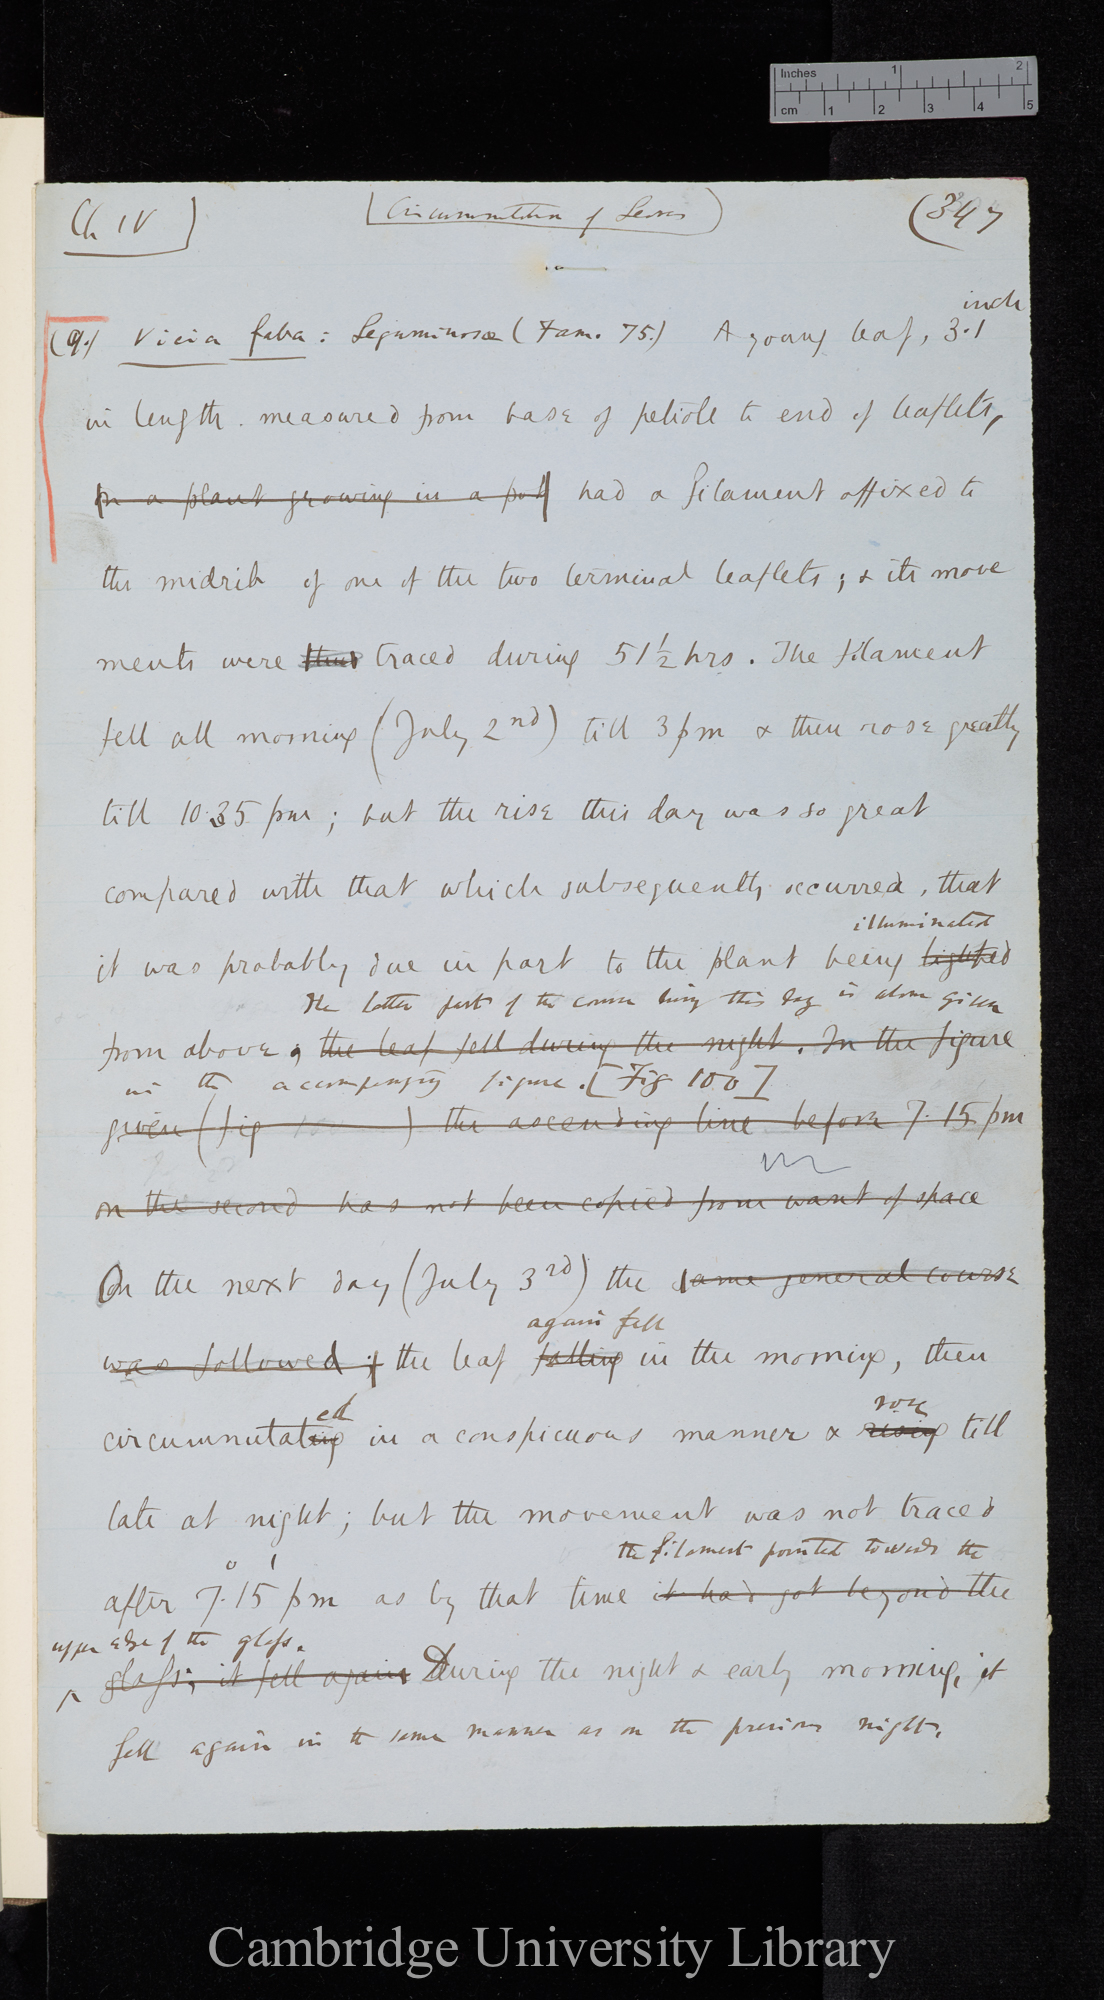 Inches 1 2
cm 1 2 3 4 5
Ch IV]
[Circumnutation of Leaves]
(347
inch
(9.) Vicia faba: Leguminosæ (Fam. 75.) A young leaf, 3.1
in length. measured from base of petiole to end of leaflets,
on a plant growing in a pot had a filament affixed to
the midrib of one of the two terminal leaflets; & its move
ments were thus traced during 51½ hrs. The filament
fell all morning (July 2nd) till 3 pm & then rose greatly
till 10.35 pm; but the rise this day was so great
compared with that which subsequently occurred, that
illuminated
it was probably due in part to the plant being lighted
The latter part of the course during this day is alone given
from above, the leaf fell during the night. In the figure
in the accompanying figure. [Fig 100]
given (fig 100 ) the ascending line before 7.15 pm
on the second has not been copied from want of space
On the next day (July 3rd) the same general course
again fell
was followed; the leaf falling in the morning, then
ed rose
circumnutating in a conspicuous manner & rising till
late at night; but the movement was not traced
the filament pointed towards the
after 7.15 pm as by that time it had got beyond the
upper edge of the glass.
glass; it fell again During the night & early morning, it
fell again in the same manner as on the previous night.
Cambridge University Library